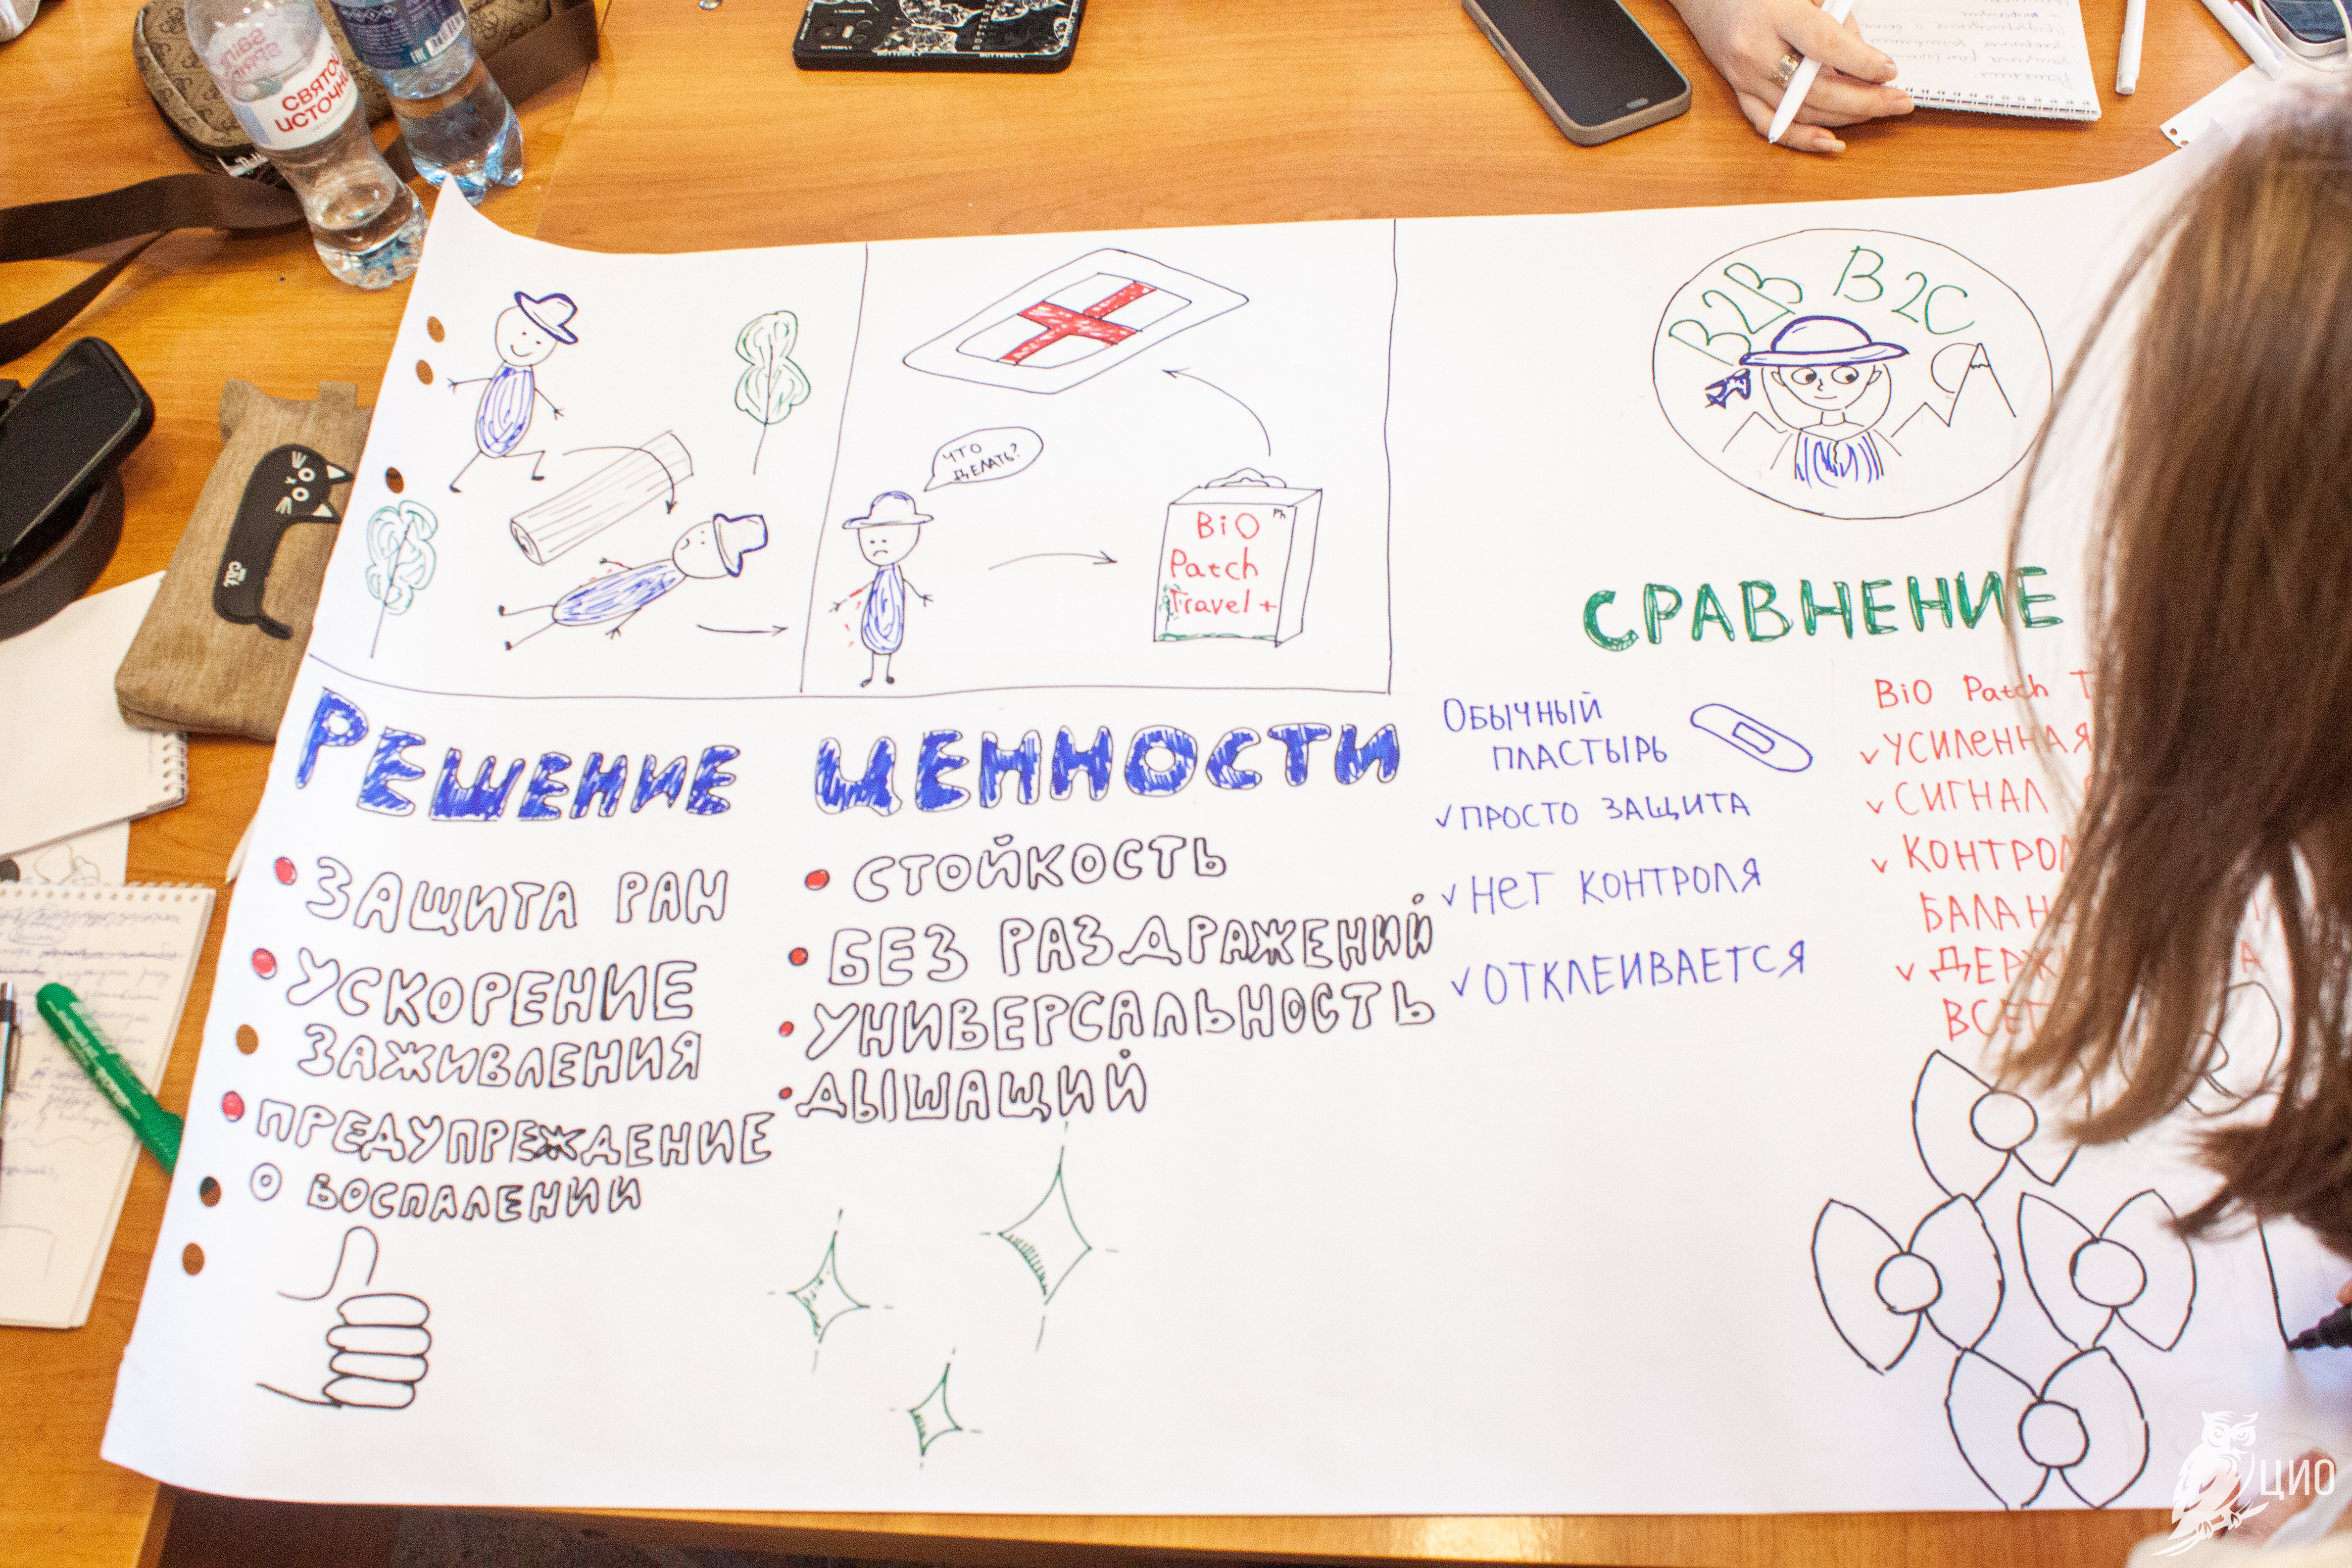 СВЯТОЙ
ИСТОЧНИ
BUTTERFLY
BUTTERFLY
ЧТО
ДЕЛАТЬ?
BiO
Ph
Patch
Travel+
B2B B2C
РЕШЕНИЕ
ЗАЩИТА РАН
УСКОРЕНИЕ
ЗАЖИВЛЕНИЯ
ПРЕДУПРЕЖДЕНИЕ
О ВОСПАЛЕНИИ
ЦЕННОСТИ
СТОЙКОСТЬ
БЕЗ РАЗДРАЖЕНИЙ
УНИВЕРСАЛЬНОСТЬ
ДЫШАЩИЙ
СРАВНЕНИЕ
ОБЫЧНЫЙ
ПЛАСТЫРЬ
ПРОСТО ЗАЩИТА
НЕТ КОНТРОЛЯ
ОТКЛЕИВАЕТСЯ
BiO Patch T
УСИЛЕННАЯ
СИГНАЛ
КОНТРОЛ
БАЛАН
ДЕРЖ
ВСЕГ
cat
ЦИО